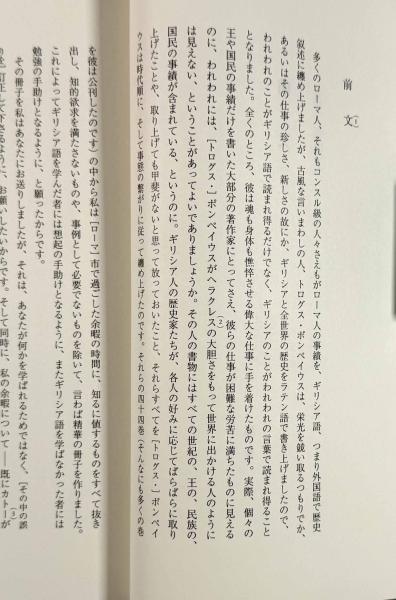 前文(1)
多くのローマ人、それもコンスル級の人々さえもがローマ人の事績を、ギリシア語、つまり外国語で歴史
叙述に纏め上げましたが、古風な言いまわしの人、トログス・ポンペイウスは、栄光を競い取るつもりでか、
あるいはその仕事の珍しさ、新しさの故にか、ギリシアと全世界の歴史をラテン語で書き上げましたので、
われわれのことがギリシア語で読まれ得るだけでなく、ギリシアのことがわれわれの言葉で読まれ得ること
となりました。全くのところ、彼は魂も身体も憔悴させる偉大な仕事に手を着けたものです。実際、個々の
王や国民の事績だけを書いた大部分の著作家にとってさえ、彼らの仕事が困難な労苦に満ちたものに見える
のに、われわれには、[トログス・]ポンペイウスがヘラクレスの大胆さをもって世界に出かける人のように(2)
は見えない、ということがあってよいでありましょうか。その人の書物にはすべての世紀の、王の、民族の、
国民の事績が含まれている、というのに。ギリシア人の歴史家たちが、各人の好みに応じてばらばらに取り
上げたことや、取り上げても甲斐がないと思って放っておいたこと、それらすべてを[トログス・]ポンペイ
ウスは時代順に、そして事態の繋がりに従って纏め上げたのです。それらの四十四巻(そんなにも多くの巻
を彼は公刊したのです)の中から私は[ローマ]市で過ごした余暇の時間に、知るに値するものをすべて抜き
出し、知的欲求を満たさないものや、事例として必要でないものを除いて、言わば精華の冊子を作りました。
これによってギリシア語を学んだ者には想起の手助けとなるように、またギリシア語を学ばなかった者には
勉強の手助けとなるように、と願ったからです。
その冊子を私はあなたにお送りしましたが、それは、あなたが何かを学ばれるためではなく、[その中の誤
訂正して下さるように、お願いしたいからです。そして同時に、私の余暇について——既にカトーが(3)